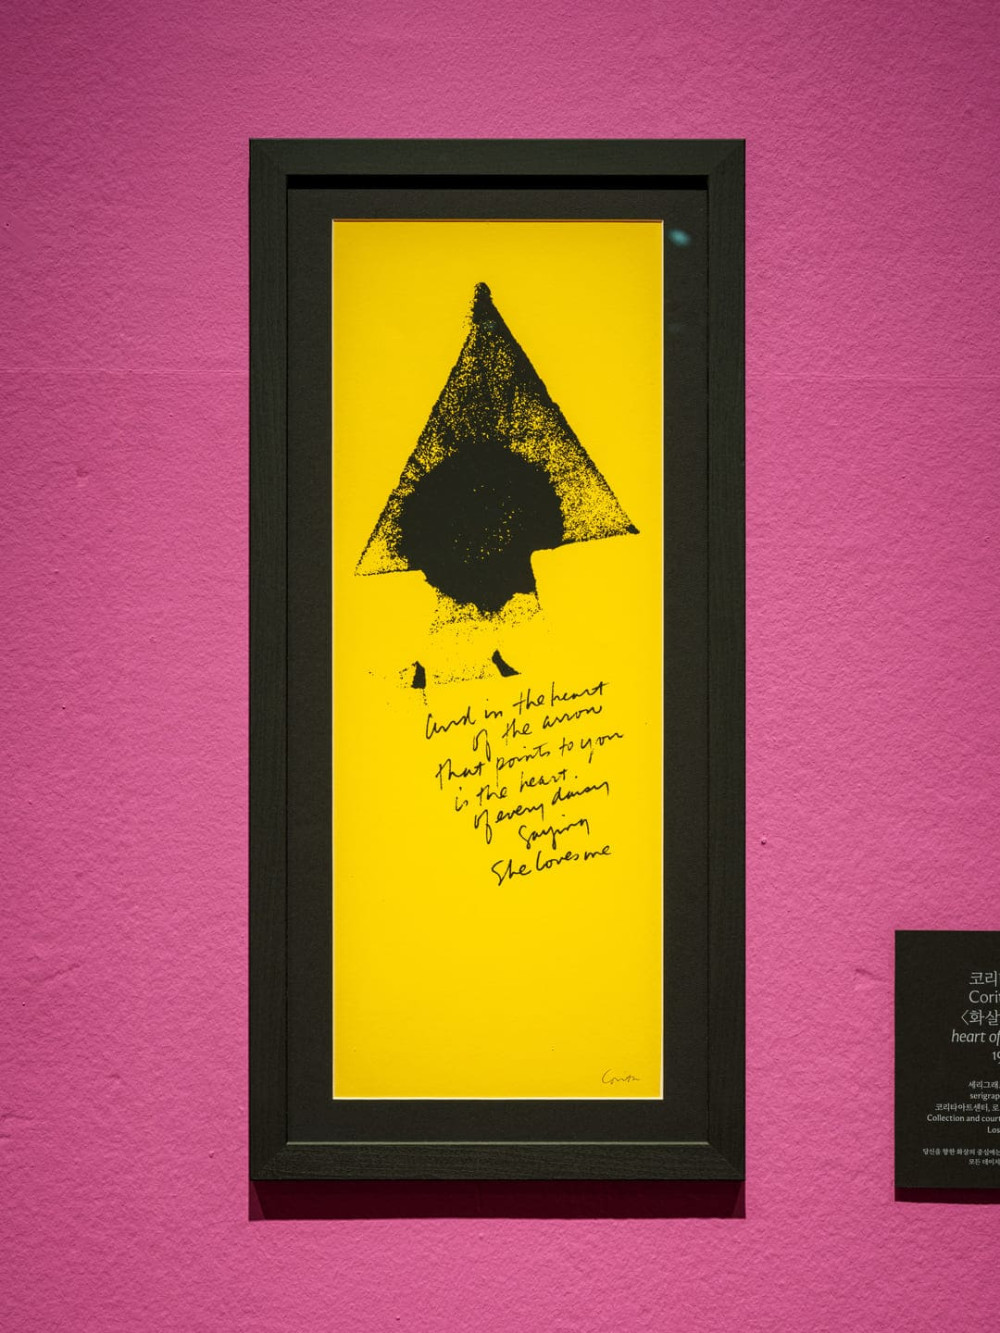 And in the heart
of the arrow
that points to you
is the heart.
of every daisy
saying
She loves me
Corita
코리
Cori
〈화살
heart of
19
세리그래
serigrap
코리타아트센터, 로
Collection and court
Los
당신을 향한 화살의 중심에는
모든 데이지